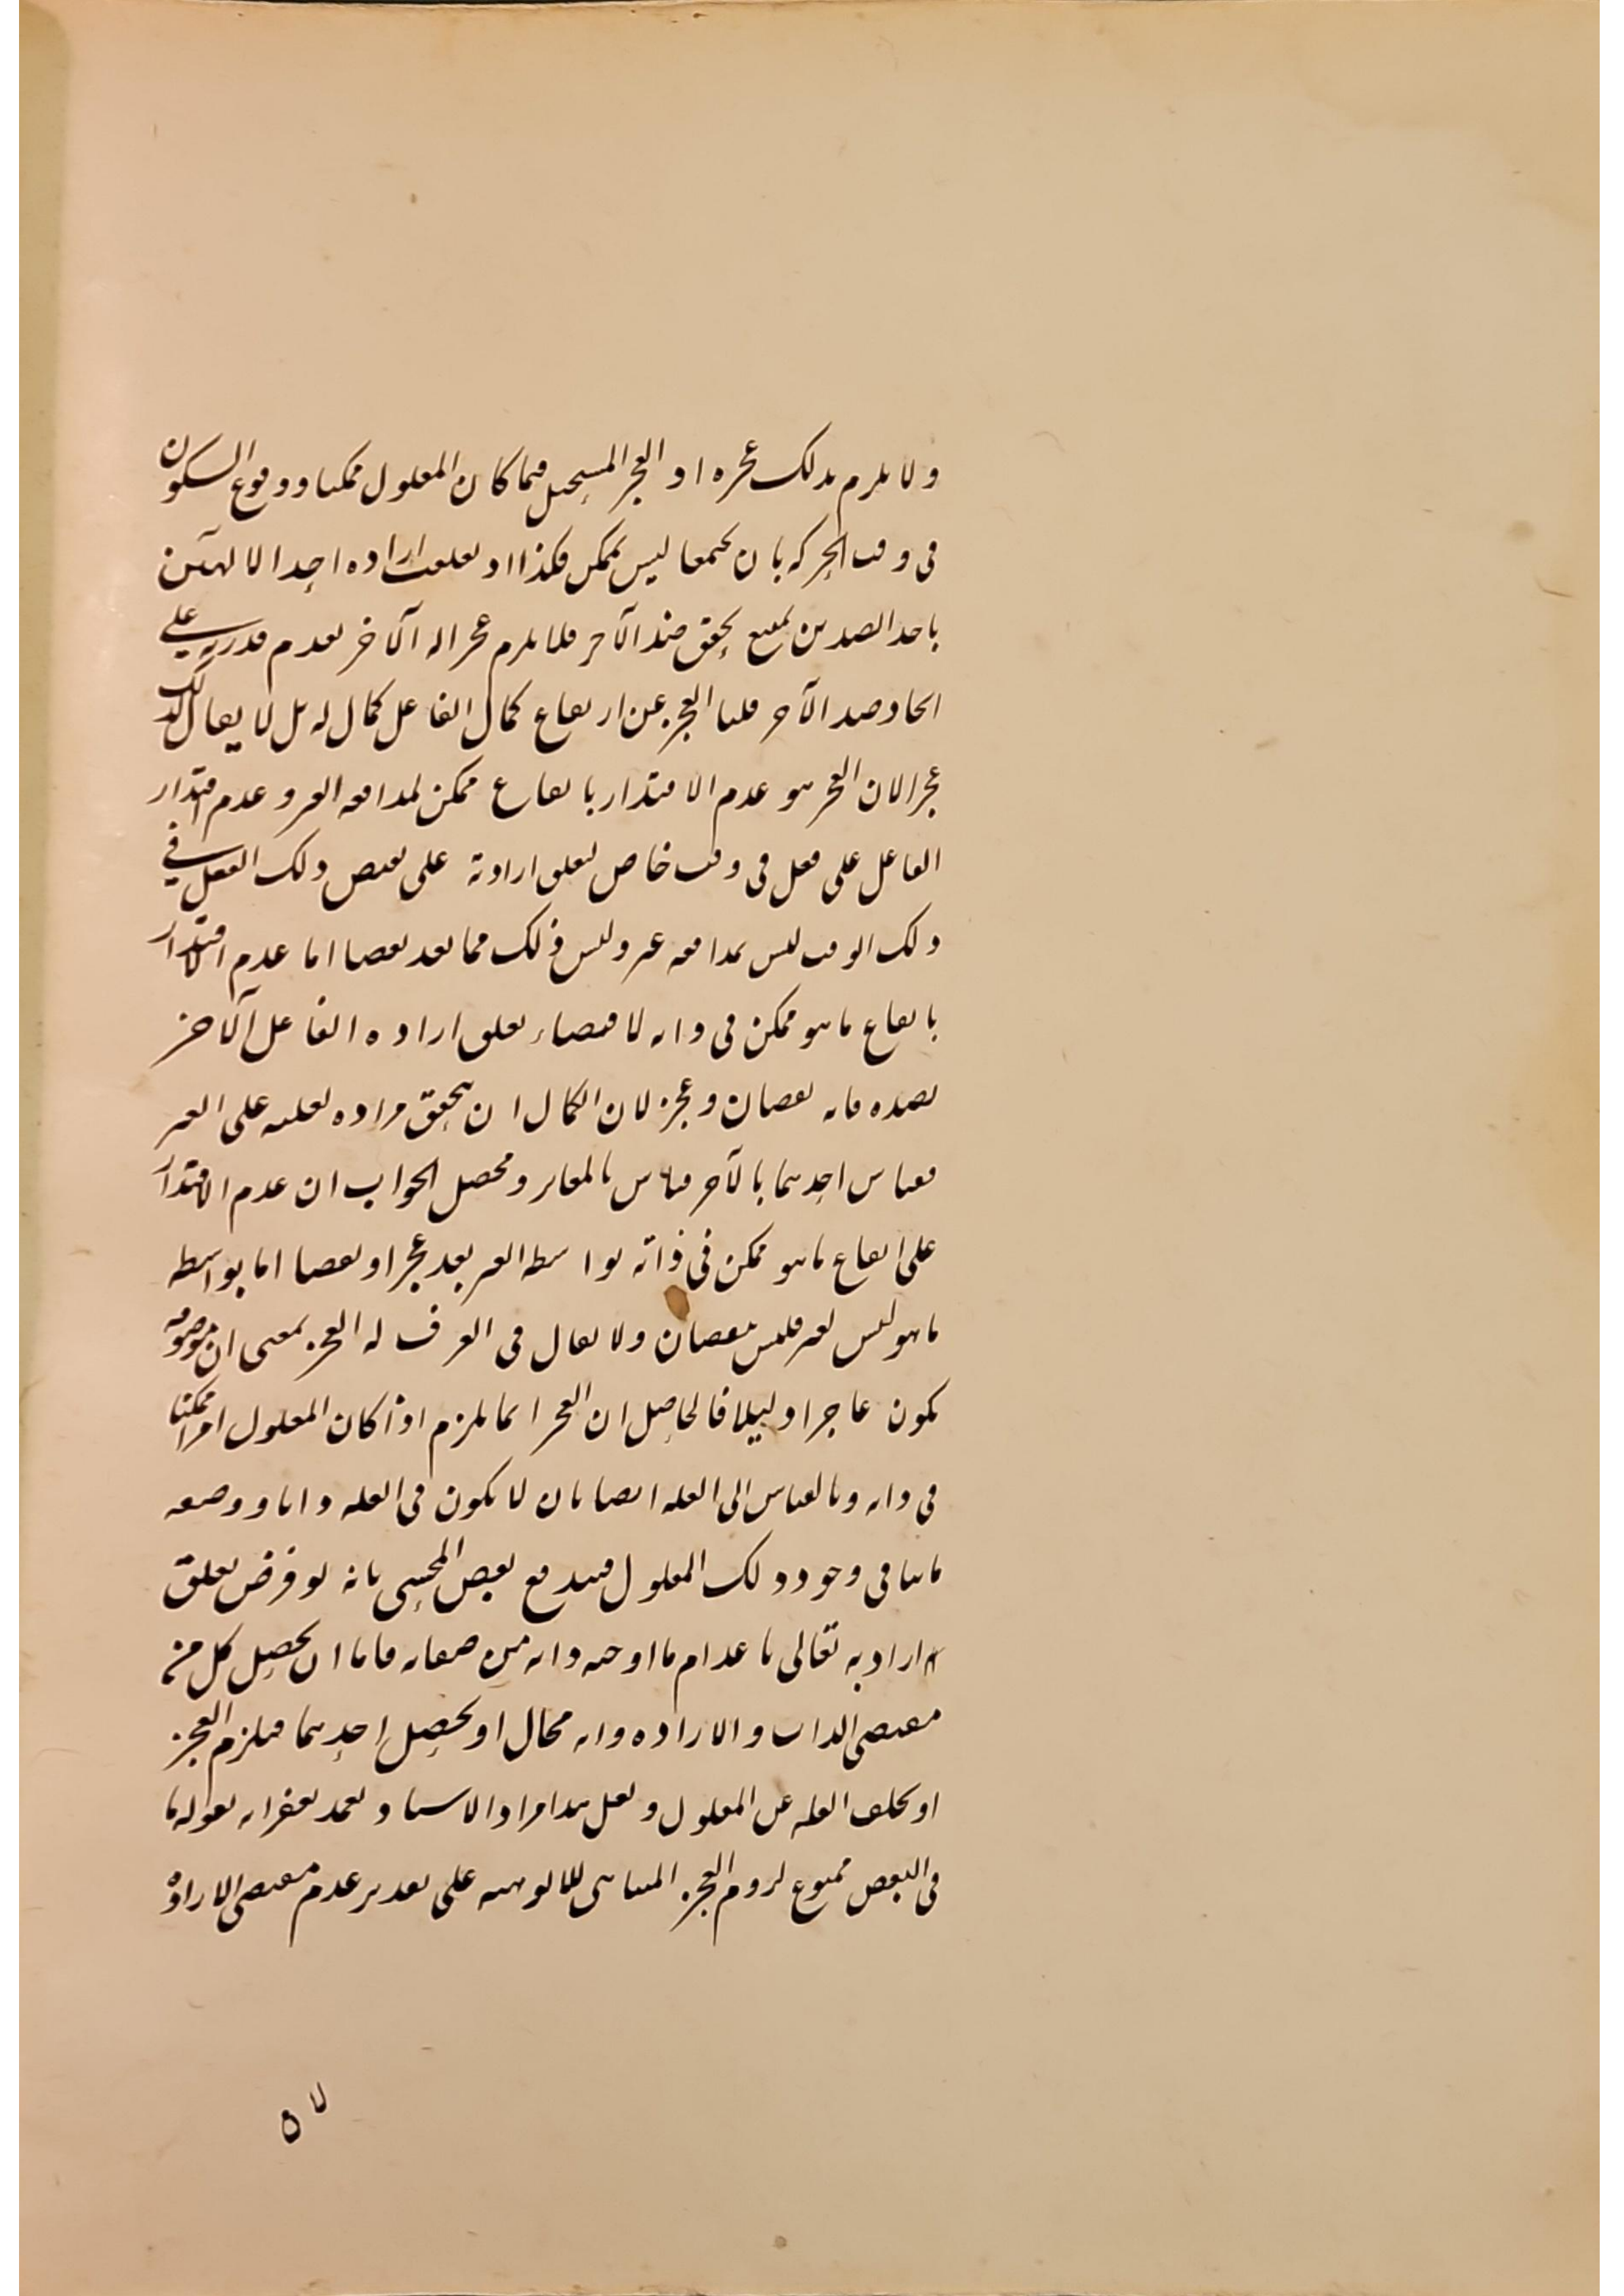 ولا يلزم بذلك عجزه اذ العجز المستحيل فيما كان المعلول ممكنا ووقوع السكون
في وقت الحركه بان يجتمعا ليس بممكن فكذا اذ تعلقت اراده احد الالهين
باحد الضدين يمتنع تحقق ضد الآخر فلا يلزم عجز اله الآخر لعدم قدرته على
ايجاد ضد الآخر قلنا العجز عن ارتفاع كمال الفاعل كمال له بل لا يقال لذلك
عجزا لان العجز هو عدم الاقتدار بايقاع ممكن لمدافعه الغير وعدم اقتدار
الفاعل على فعل في وقت خاص لتعلق ارادته على نقيض ذلك الفعل في
ذلك الوقت ليس بمدافعه غير وليس ذلك مما يعد نقصا اما عدم الاقتدار
بايقاع ما هو ممكن في ذاته لاقتضاء تعلق اراده الفاعل الآخر
بضده فانه نقصان وعجز لان الكمال ان يتحقق مراده لغلبته على الغير
فقياس احدهما بالآخر قياس بالمغاير ومحصل الجواب ان عدم الاقتدار
على ايقاع ما هو ممكن في ذاته بواسطه الغير يعد عجزا ونقصا اما بواسطه
ما هو ليس لغير فليس بنقصان ولا يقال في العرف له العجز بمعنى ان موصوفه
يكون عاجزا ذليلا فالحاصل ان العجز انما يلزم اذا كان المعلول امرا ممكنا
في ذاته وبالقياس الى العله ايضا بان لا يكون في العله ذاتا ووصفه
ما ينافي وجود ذلك المعلول فيندفع بعض المحشي بانه لو فرض تعلق
ارادته تعالى باعدام ما اوجبه ذاته من صفاته فاما ان يحصل كل من
مقتضى الذات والاراده وانه محال او يحصل احدهما فيلزم العجز
او تخلف العله عن المعلول ولعل هذا مراد الاستاد بقوله ما
في البعض ممنوع لزوم العجز المنافي للالوهيه على تقدير عدم مقتضى الاراده